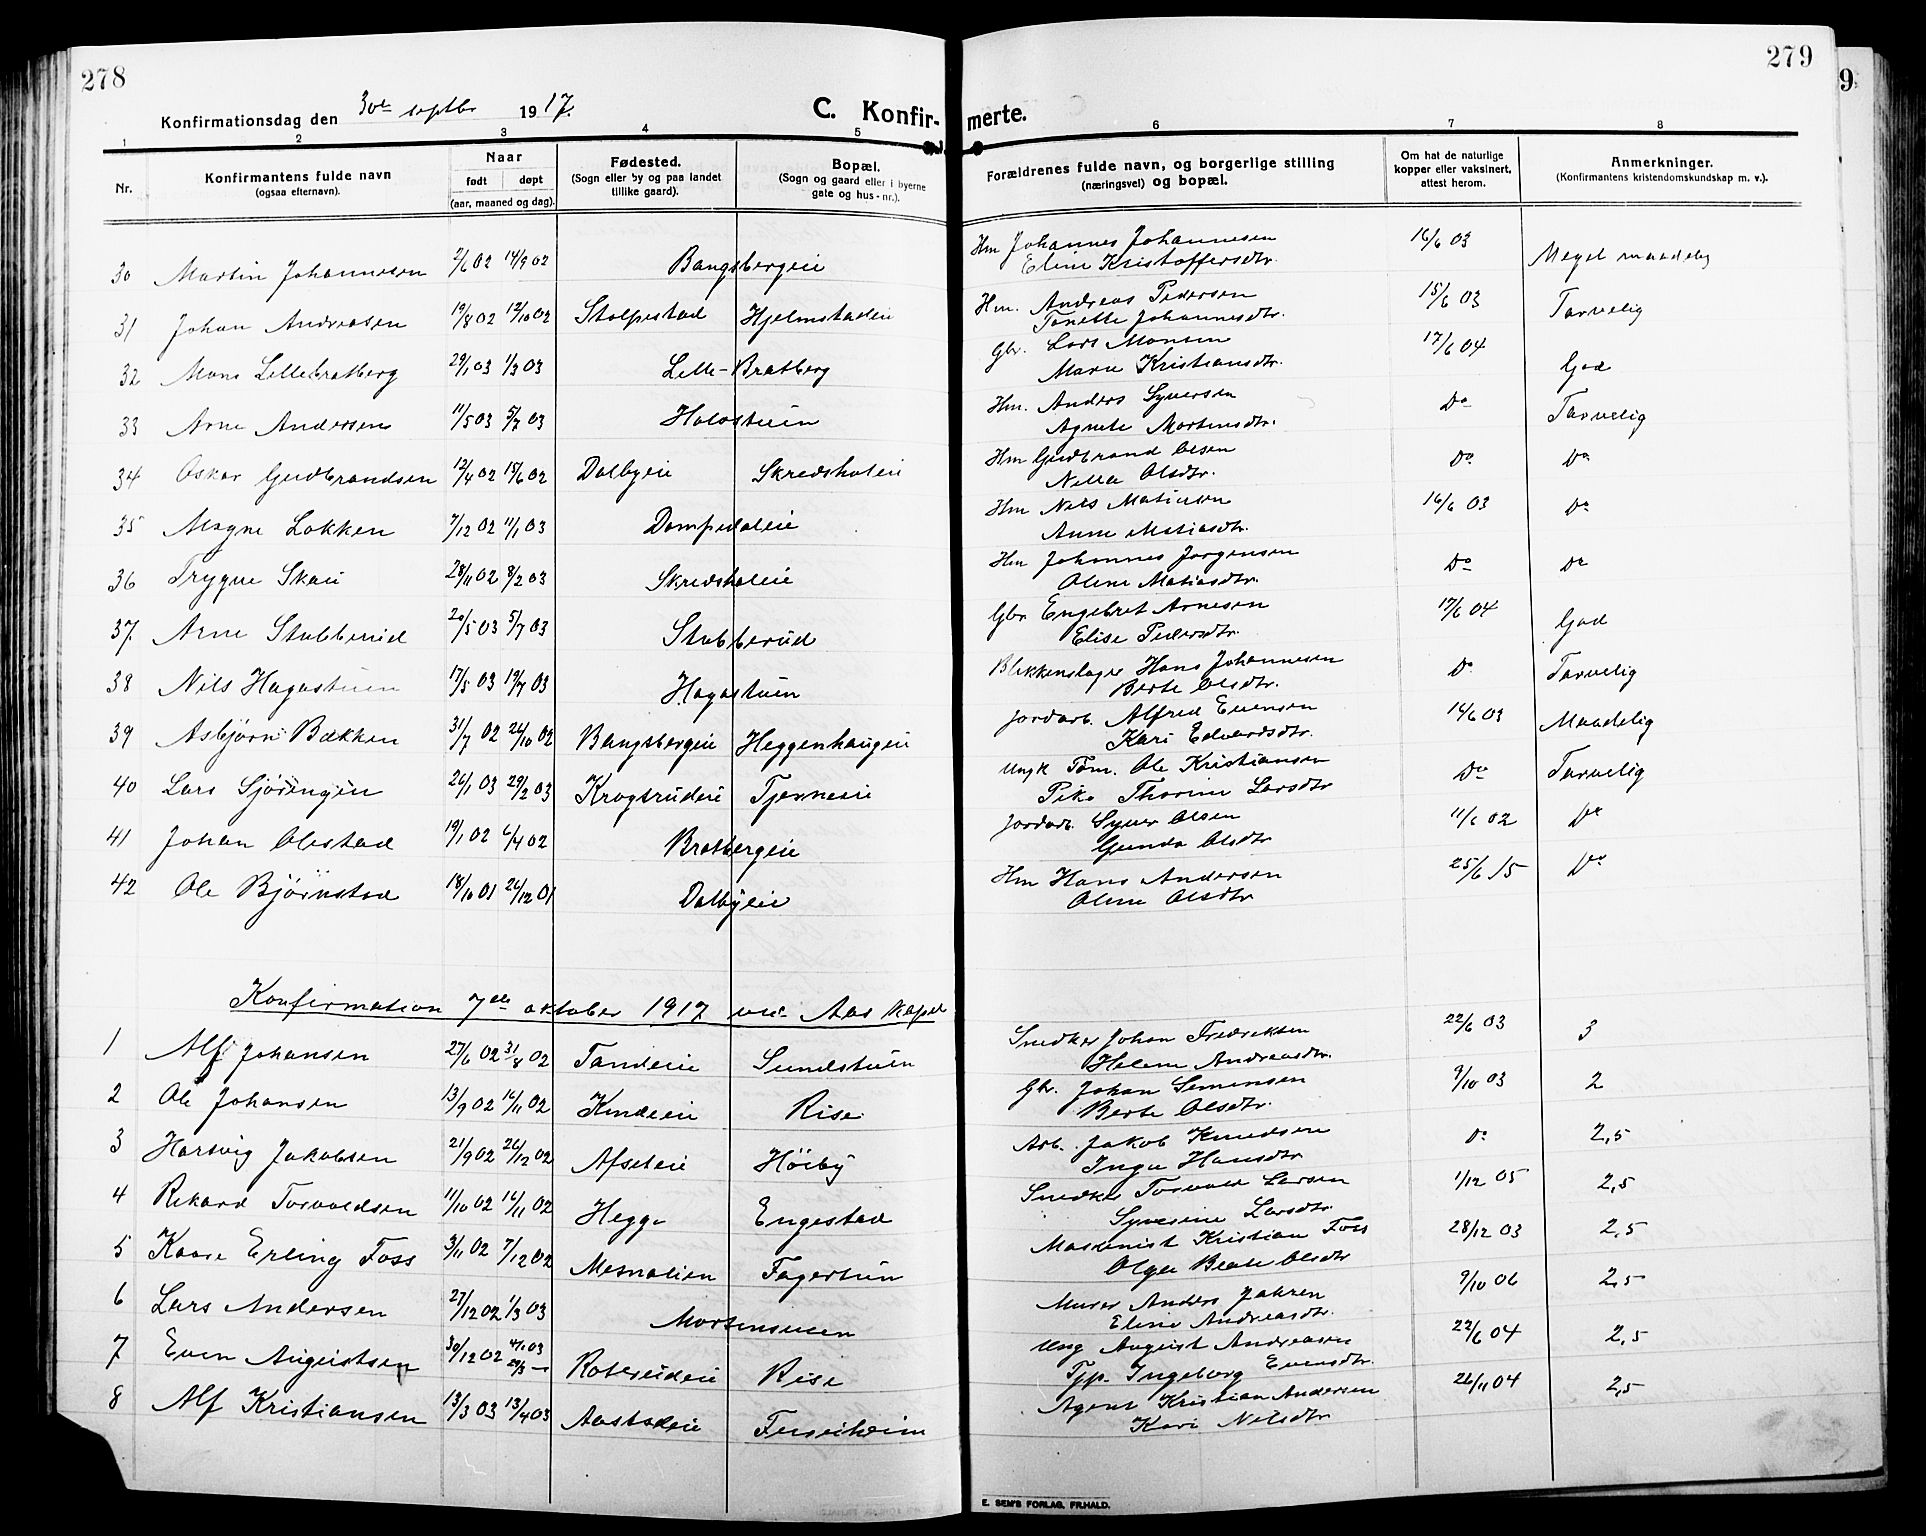 278
279
9
Konfirmationsdag den 30te septbr 1917.
C. Konfirmerte.
1 2 3 4 5 6 7 8
Nr.
Konfirmantens fulde navn
(ogsaa efternavn).
Naar
født døpt
(aar, maaned og dag).
Fødested.
(Sogn eller by og paa landet
tillike gaard).
Bopæl.
(Sogn og gaard eller i byerne
gate og hus-nr.).
Forældrenes fulde navn, og borgerlige stilling
(næringsvei) og bopæl.
Om hat de naturlige
kopper eller vaksinert,
attest herom.
Anmerkninger.
(Konfirmantens kristendomskundskap m. v.).
30 Martin Johannesen 2/6 02 14/9 02 Bangsbergeie Hm Johannes Johannesen 16/6 03 Meget maadelig
Eline Kristoffersdtr.
31 Johan Andreasen 19/8 02 12/10 02 Stolpestad Hjelmstadeie Hm. Andreas Pedersen 15/6 03 Tarvelig
Tonette Johannesdtr.
32 Mons Lillebratberg 29/1 03 1/3 03 Lille-Bratberg Gbr. Lars Monsen 17/6 04 God
Marie Kristiansdtr.
33 Arne Andersen 11/5 03 5/7 03 Holostuen Hm. Anders Syversen Do Tarvelig
Agnete Mortensdtr.
34 Oskar Gudbrandsen 12/4 02 15/6 02 Dalbyeie Skredsholeie Hm Gudbrand Olsen Do Do
Nella Olsdtr.
35 Magne Løkken 7/12 02 11/1 03 Dompedaleie Hm Nils Matiesen 16/6 03 Do
Anne Matiasdtr.
36 Trygve Skau 28/11 02 8/2 03 Skredsholeie Hm Johannes Jørgensen Do Do
Oline Matiasdtr.
37 Arne Stubberud 20/5 03 5/7 03 Stubberud Gbr Engebret Arnesen 17/6 04 God
Elise Pedersdtr.
38 Nils Hagastuen 17/5 03 19/7 03 Hagastuen Blikkenslager Hans Johannesen Do Tarvelig
Berte Olsdtr.
39 Asbjørn Bækken 31/7 02 26/10 02 Bangsbergeie Heggenhaugen Jordarb. Alfred Evensen 14/6 03 Maadelig
Kari Edvardsdtr.
40 Lars Sjøvengen 26/1 03 29/2 03 Krogsrudeie Tjerneseie Ungk Tøm. Ole Kristiansen Do Tarvelig
Pike Thorine Larsdtr
41 Johan Olestad 19/1 02 6/4 02 Bratbergeie Jordarb. Syver Olsen 11/6 02 Do
Gunda Olsdtr
42 Ole Bjørnstad 18/10 01 26/12 01 Dalbyeie Hm Hans Andersen 25/6 15 Do
Oline Olsdtr
Konfirmation 7de oktober 1917 ved Aas kapel
1 Alf Johansen 27/6 02 31/8 02 Tandeie Sundstuen Snedker Johan Fredriksen 22/6 03 3
Helene Andreasdtr.
2 Ole Johansen 13/9 02 16/11 02 Kindeie Rise Gbr. Johan Simensen 9/10 03 2
Berte Olsdtr.
3 Hartvig Jakobsen 21/9 02 26/12 02 Afseteie Høiby Arb. Jakob Knudsen Do 2,5
Inga Hansdtr
4 Rikard Torvaldsen 11/10 02 16/11 02 Hegge Engestad Snedker Torvald Larsen 1/12 05 2,5
Syverine Larsdtr
5 Kaare Erling Foss 3/11 02 7/12 02 Mesnalien Fagertun Maskinist Kristian Foss 28/12 03 2,5
Olga Beate Olsdtr
6 Lars Andersen 27/12 02 1/3 03 Mortenstuen Murer Anders Jahren 9/10 06 2,5
Eline Andreasdtr.
7 Even Augustsen 30/12 02 4/1 03 29/3 — Roterudeie Rise Ung August Andreasen 22/6 04 2,5
Tjp. Ingeborg Evensdtr.
8 Alf Kristiansen 13/3 03 13/4 03 Aastadeie Furuheim Agent Kristian Andersen 26/11 04 2,5
Kari Nilsdtr
E. SEM'S FORLAG, FR.HALD.